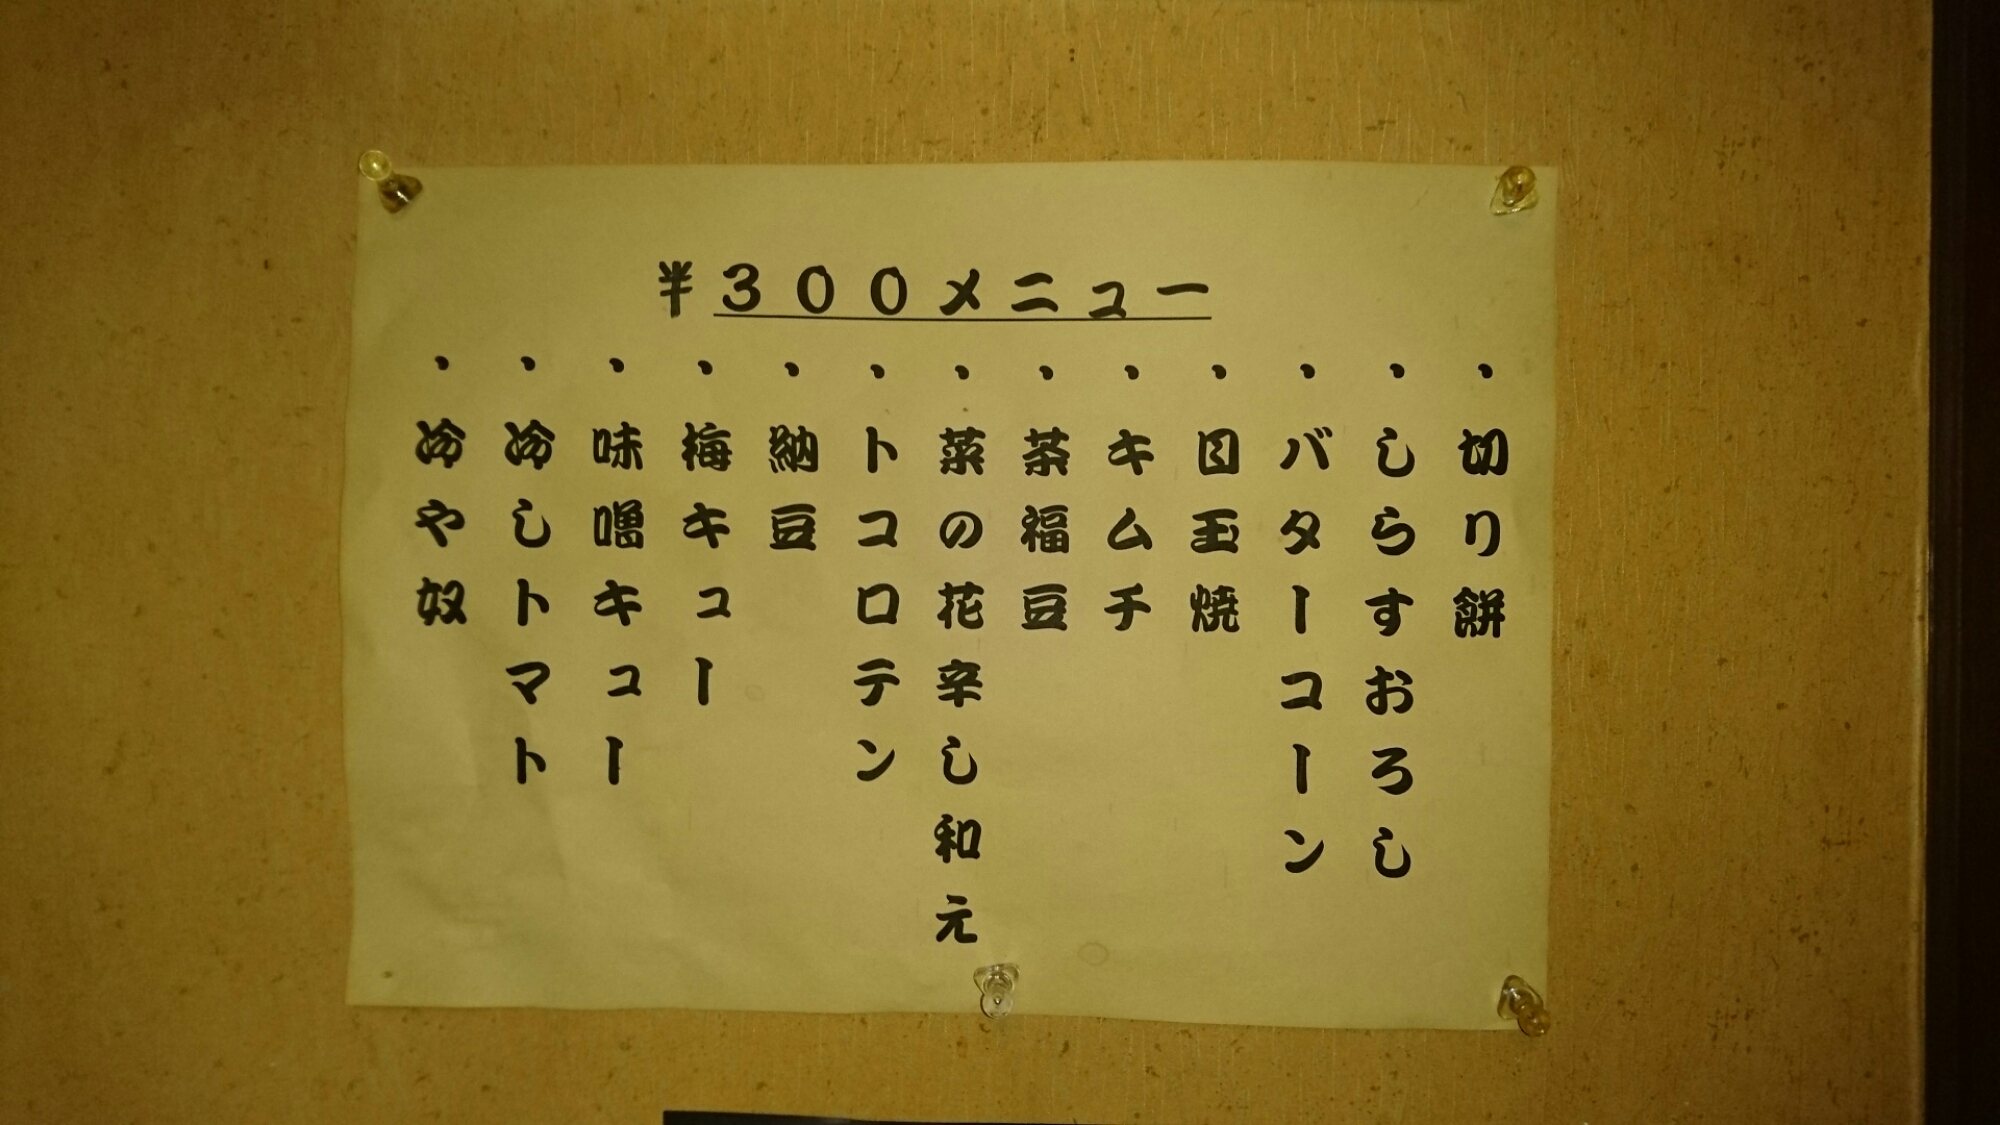 ¥300メニュー
・切り餅
・しらすおろし
・バターコーン
・目玉焼
・キムチ
・茶福豆
・菜の花辛し和え
・トコロテン
・納豆
・梅キュー
・味噌キュー
・冷しトマト
・冷や奴